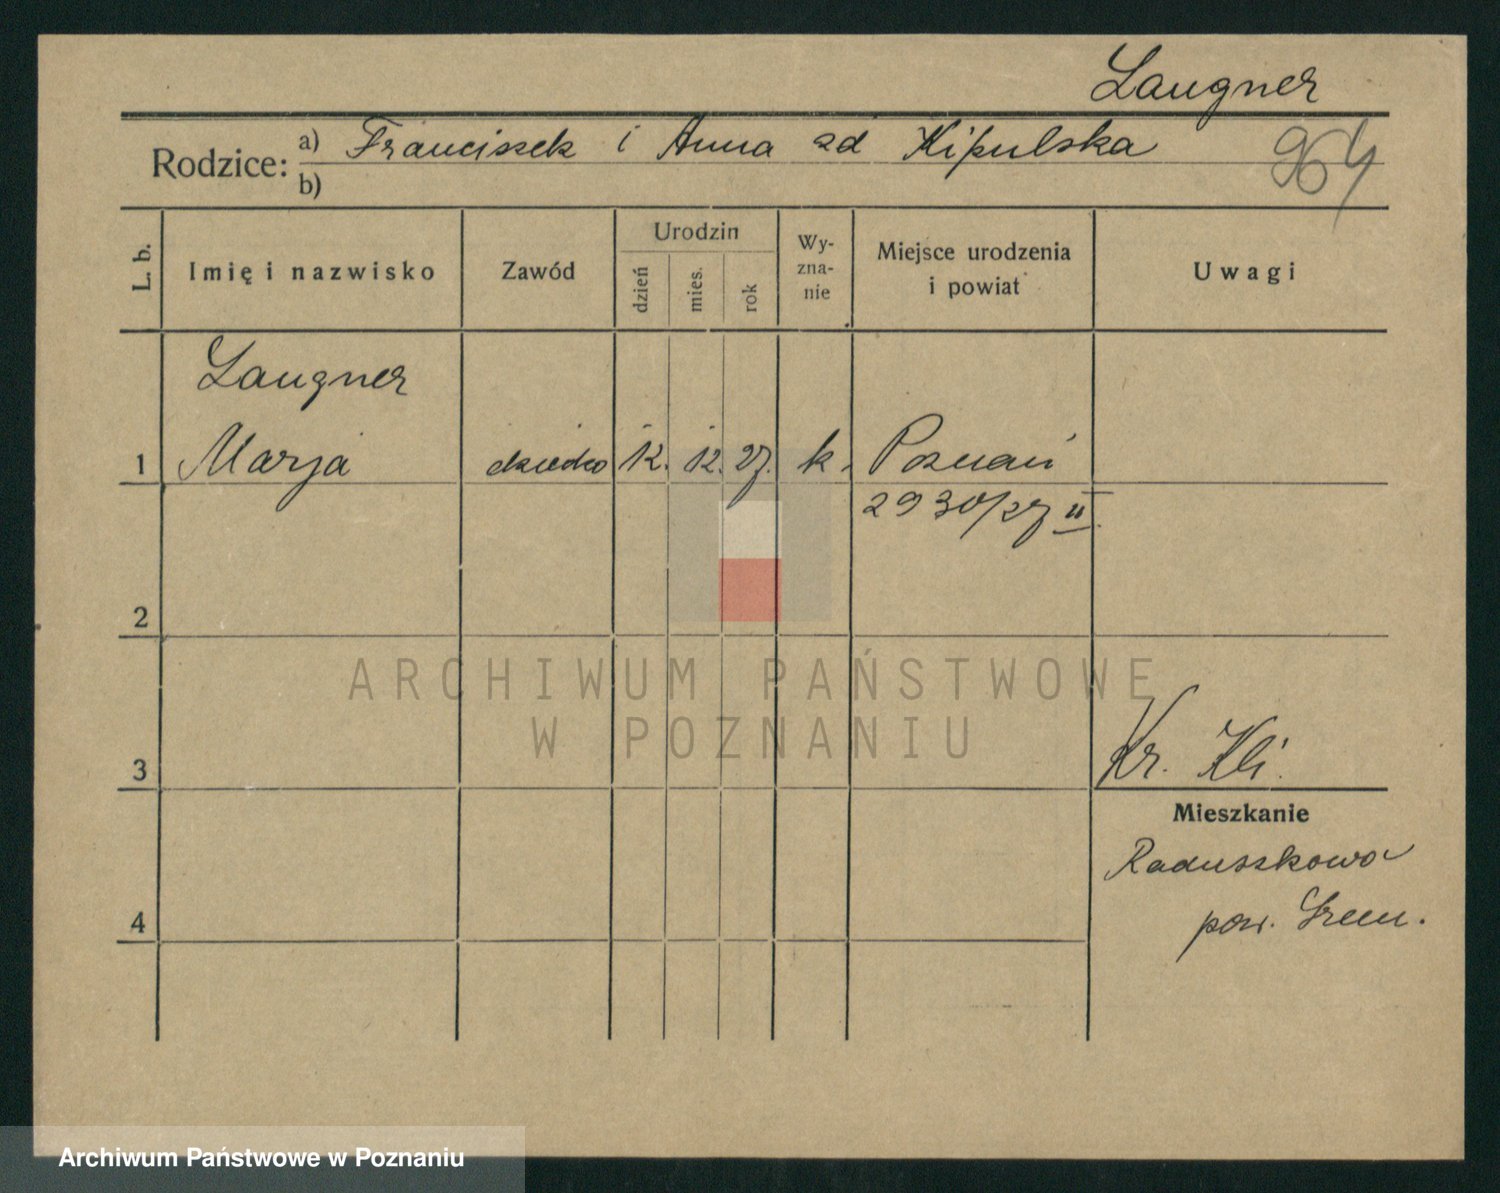 Langner
Rodzice: a) Franciszek i Anna zd Kipulska
964
b)
L. b.
Imię i nazwisko
Zawód
Urodzin
dzień
mies.
rok
Wy-
zna-
nie
Miejsce urodzenia
i powiat
Uwagi
Langner
1 Marja dziecko 12. 12. 27. k. Poznań
2930/27 II
2
3
4
Kr. Kli.
Mieszkanie
Raduszkowo
pow. Śrem.
ARCHIWUM PAŃSTWOWE
W POZNANIU
Archiwum Państwowe w Poznaniu